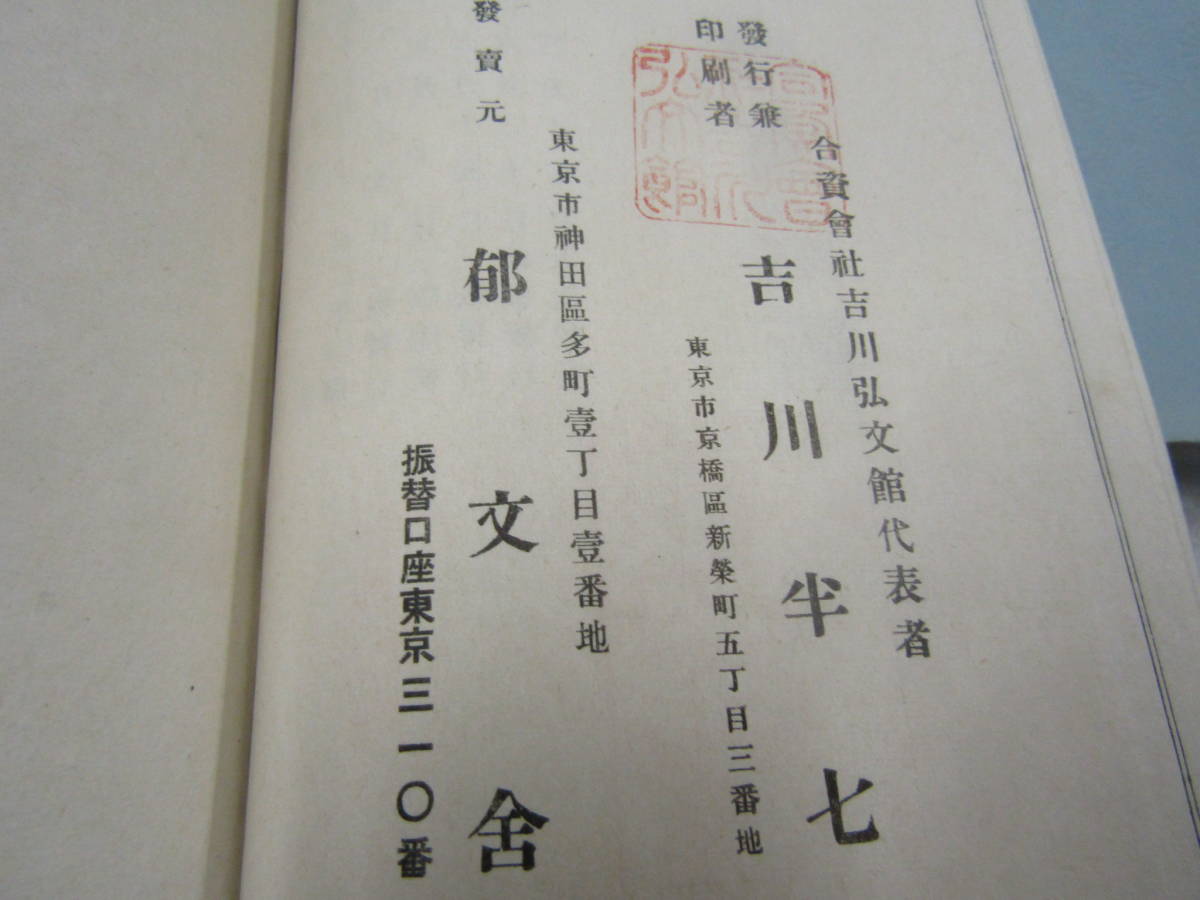 發行兼
印刷者
合資會社吉川弘文館代表者
吉川半七
東京市京橋區新榮町五丁目三番地
東京市神田區多町壹丁目壹番地
發賣元
郁文舍
振替口座東京三一〇番